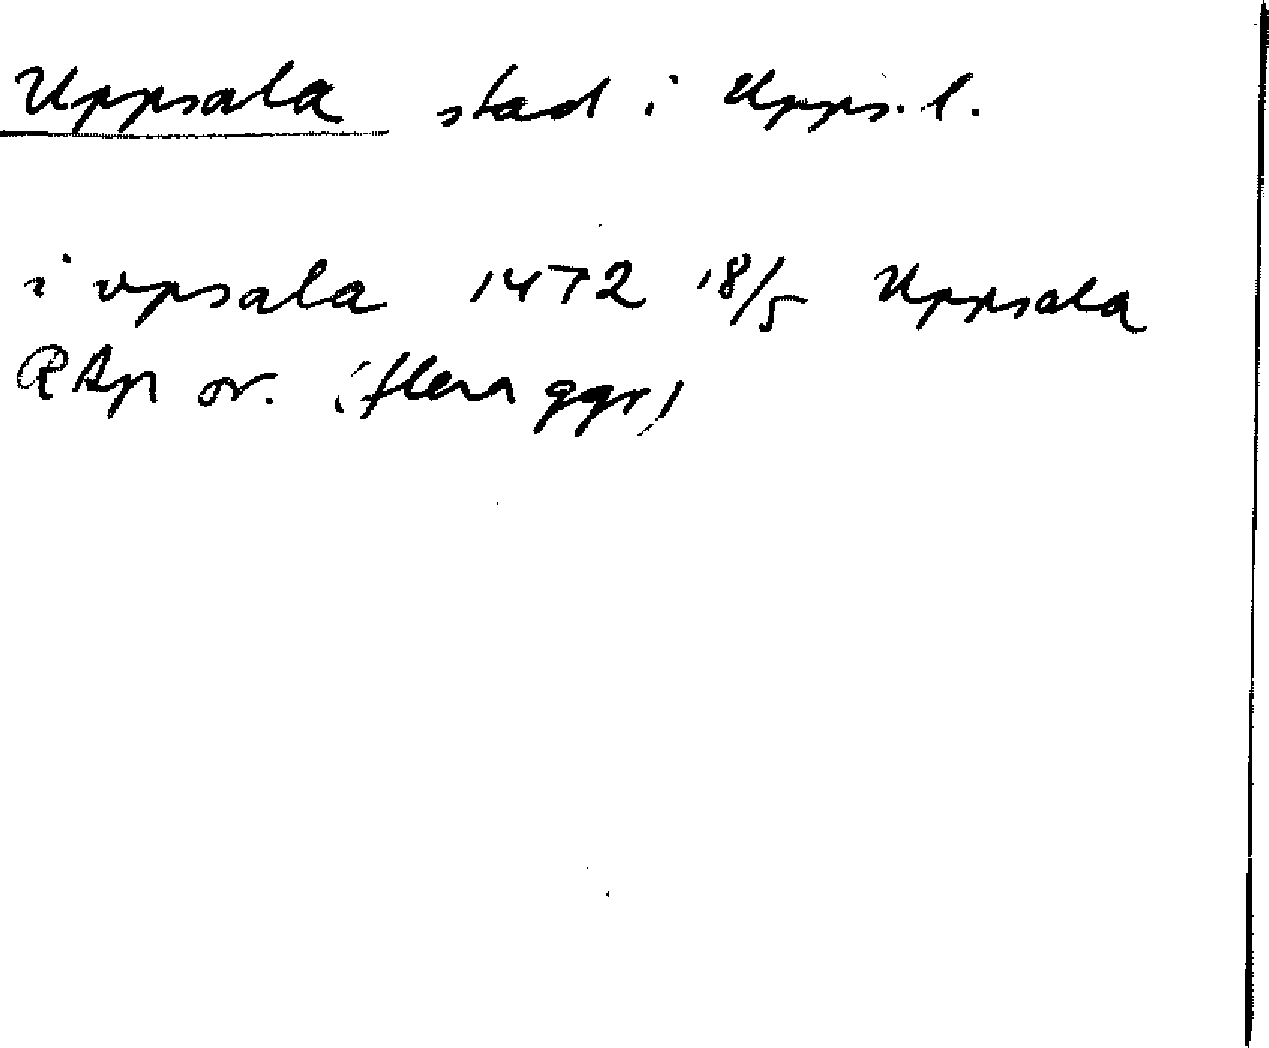 Uppsala stad i Upps. l.
i vpsala 1472 18/5 Uppsala
RAp or. (flera ggr)